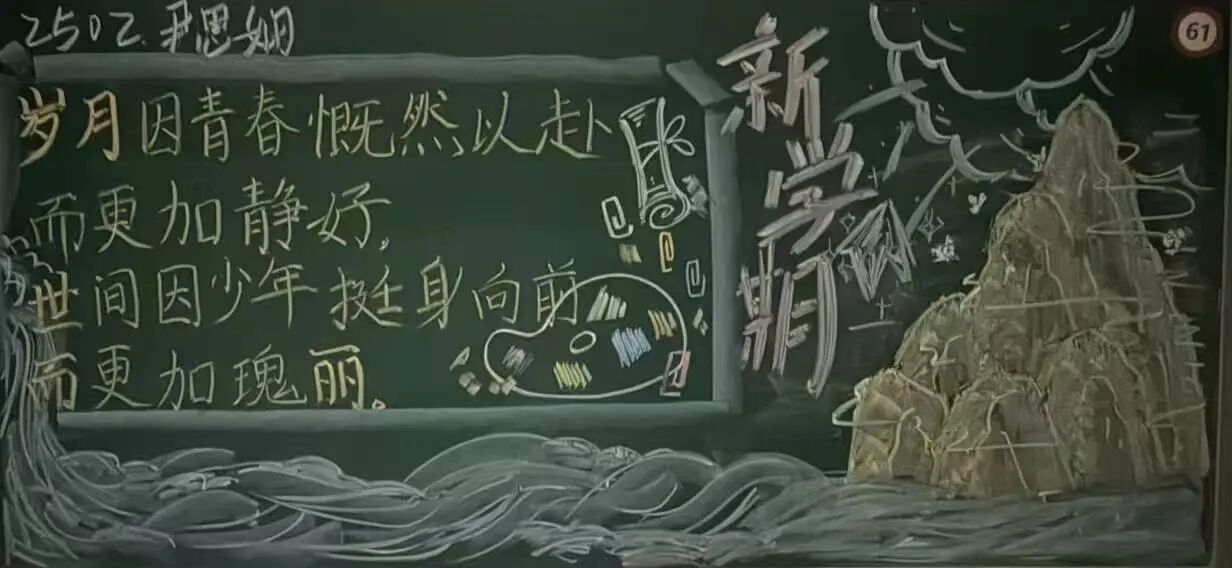 2502 尹思姻
岁月因青春慨然以赴
而更加静好,
世间因少年挺身向前
而更加瑰丽。
新学期
61